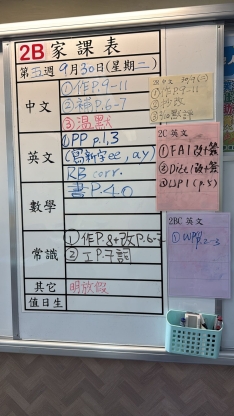 2B 家課表
第五週 9月30日(星期二)
中文
①作P.9-11
②補P.6-7
③溫默
英文
①PP p.1,3
(寫新字ee, ay)
RB corr.
數學
書P.40
常識
①作P.8+改P.6-7
②工P.7詞
其它
明放假
值日生
①作P.9-11
2C 英文
①FA1改+簽
②Dict1改+簽
③WP1 (p.4)
2BC 英文
① WPP.2-3